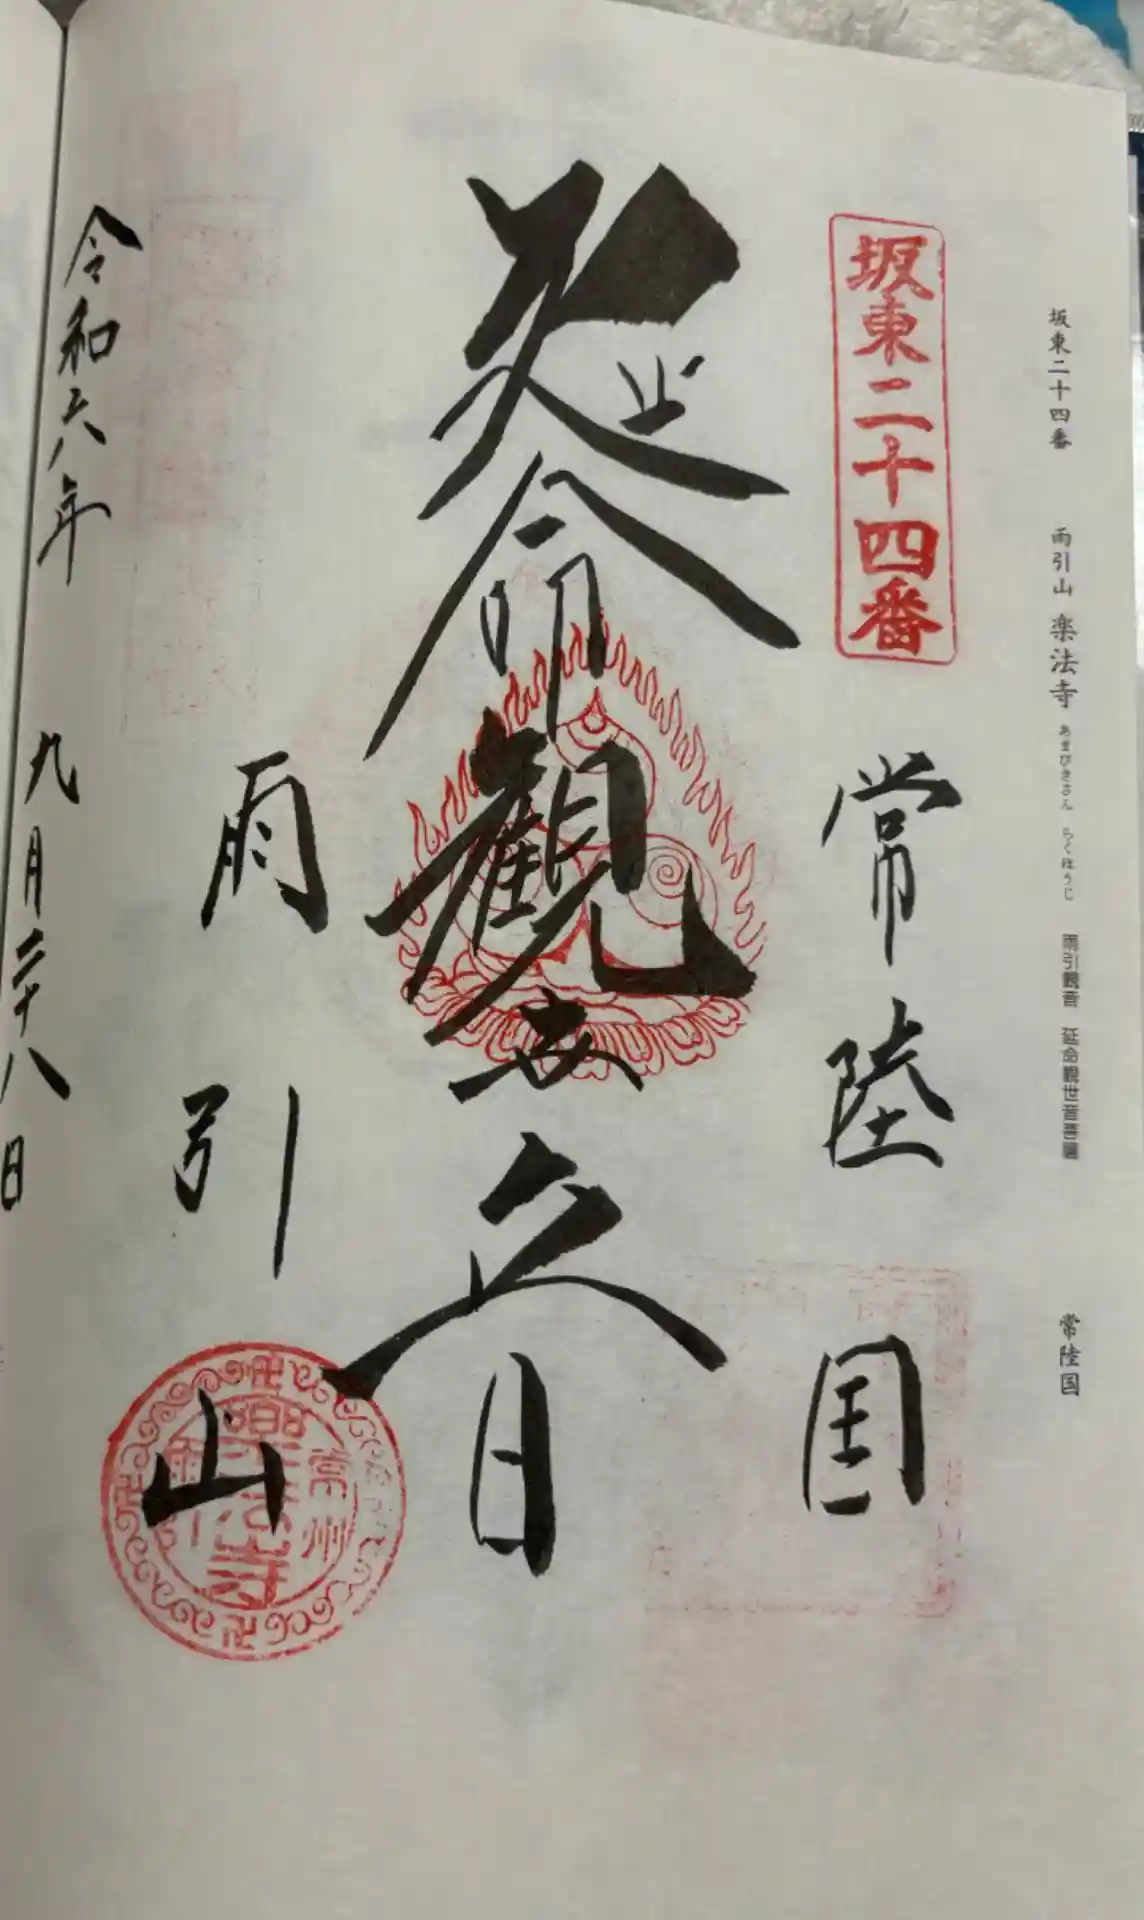 坂東二十四番 雨引山 楽法寺 あまびきさん らくほうじ 雨引観音 延命観世音菩薩 常陸国
坂東二十四番
常陸国
延命観世音
雨引山
常州
樂法寺
令和六年 九月二十八日